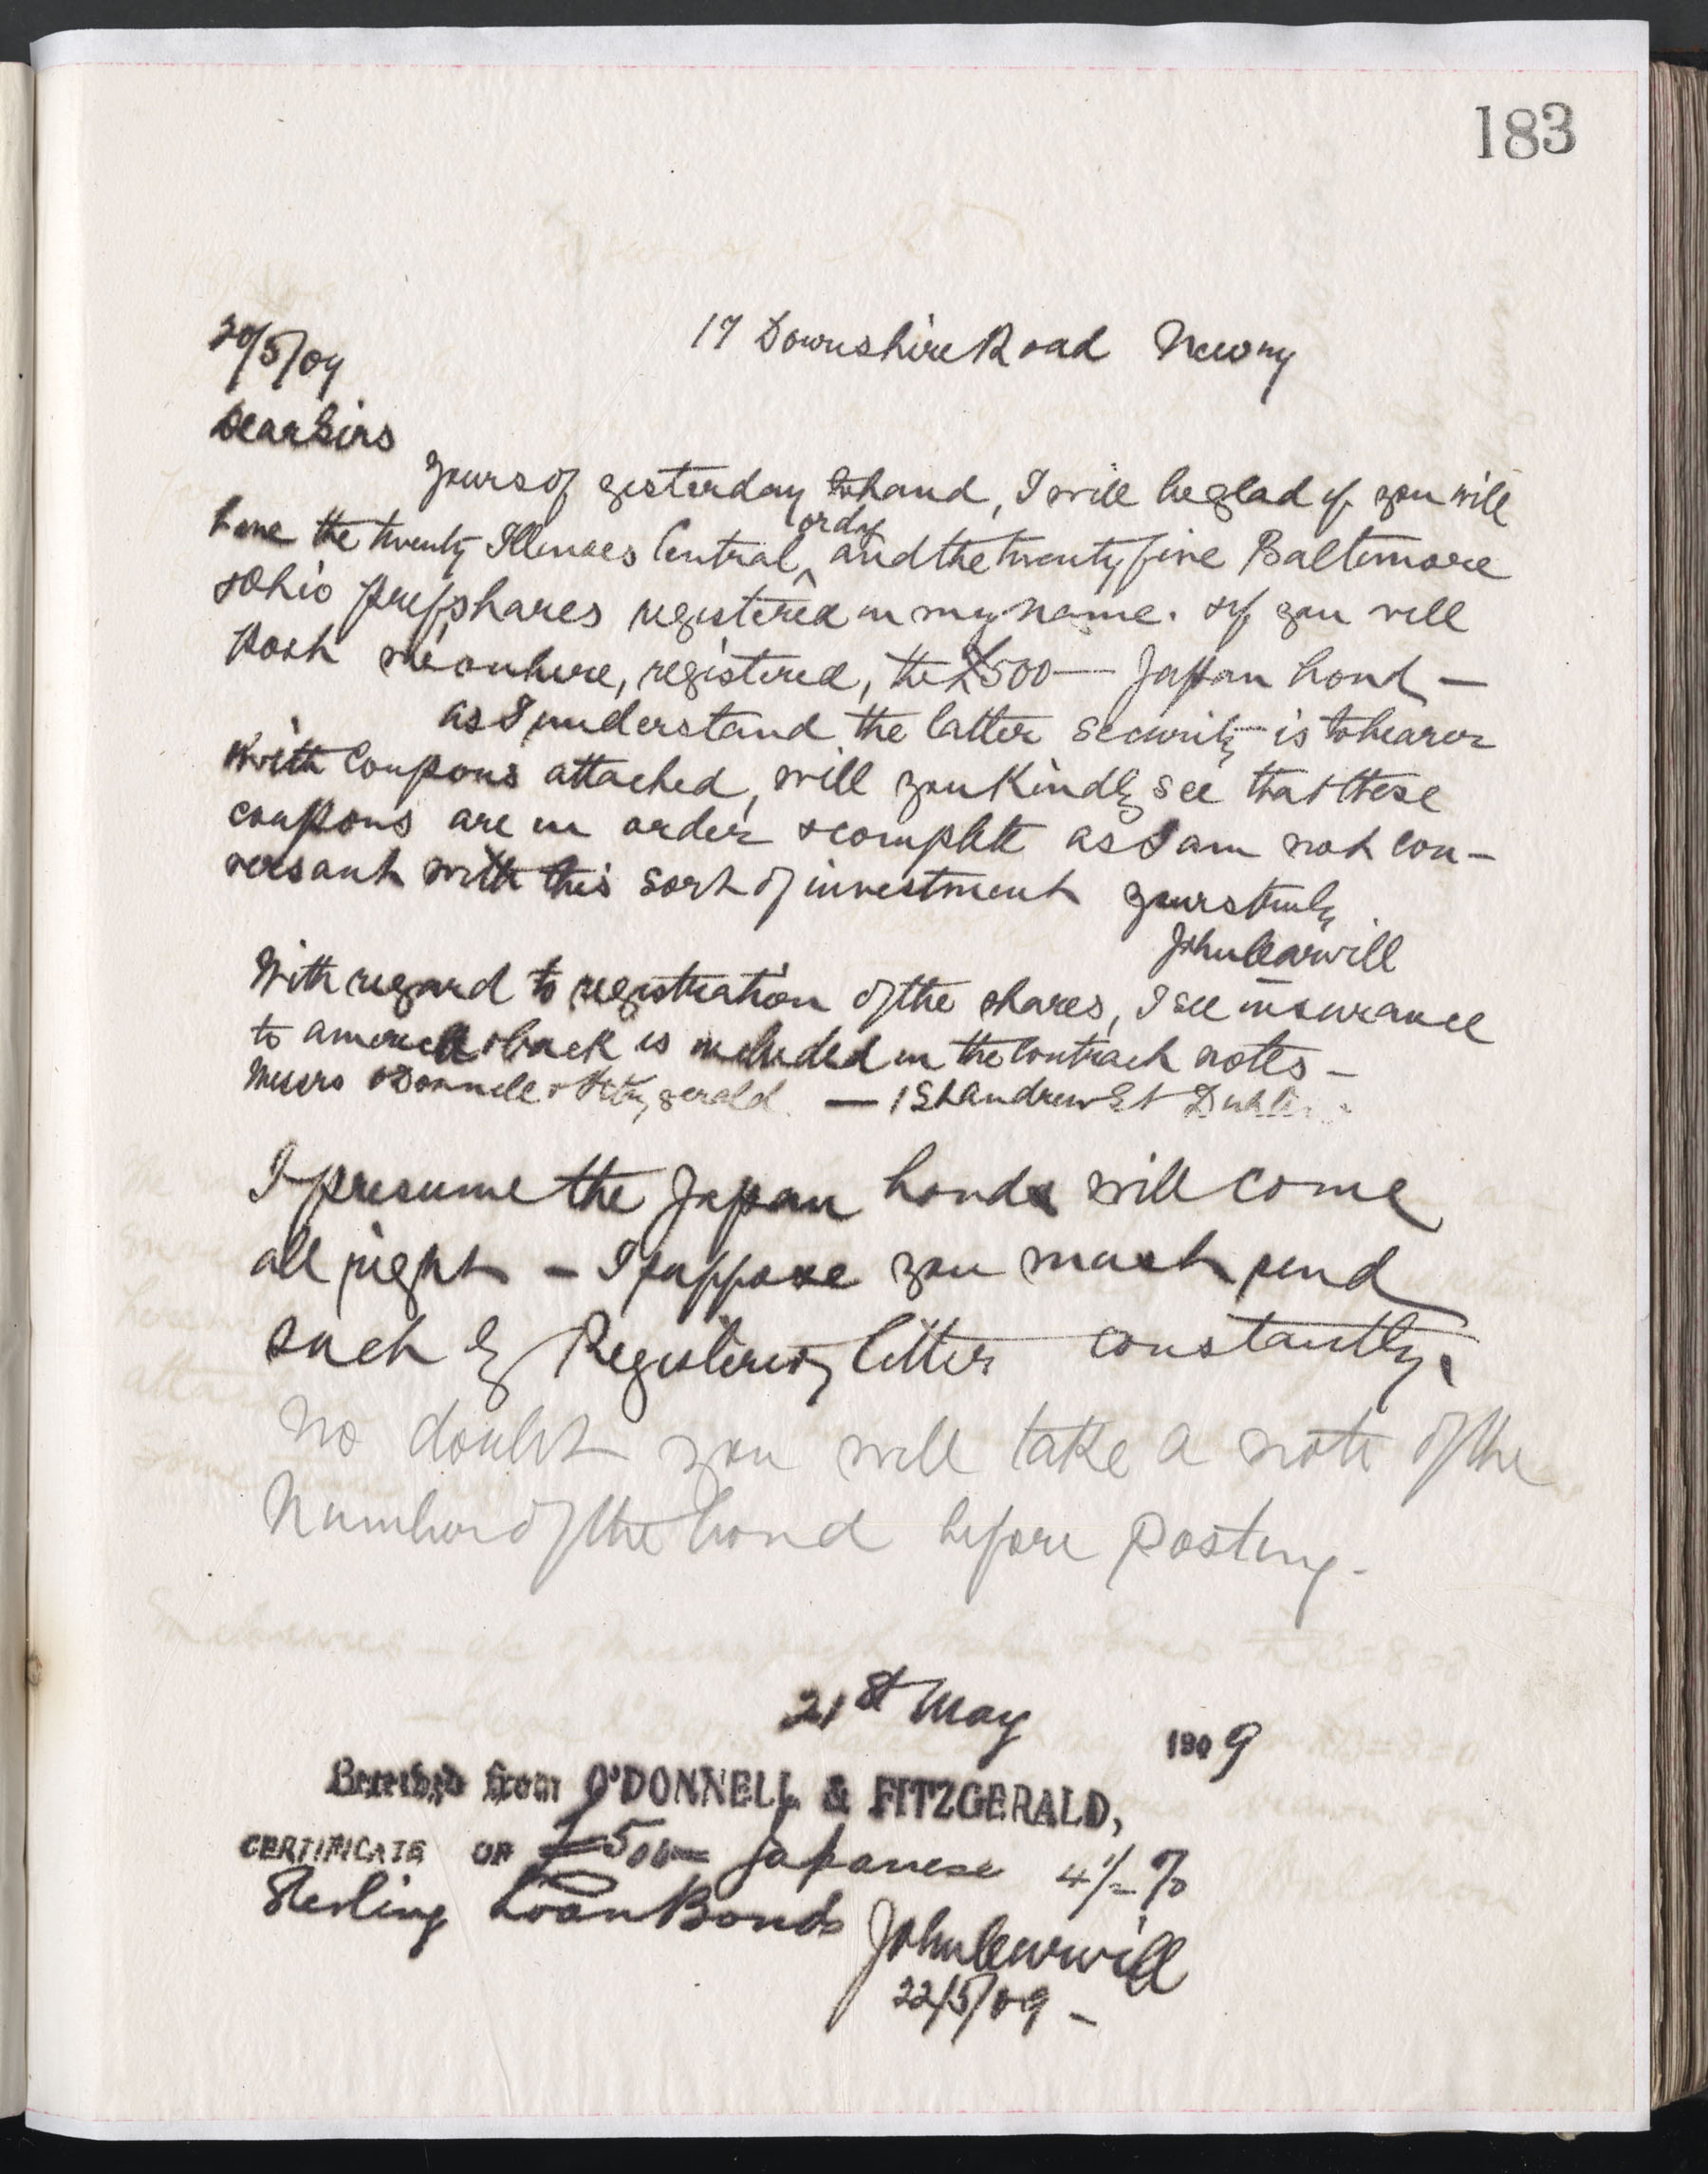 183
20/5/09
17 Downshire Road Newry
Dear Sirs
yours of yesterday to hand, I will be glad if you will
have the twenty Illinoes Central ordy and the twenty five Baltimore
& Ohio pref shares registered in my name. & if you will
Post me on here, registered, the £500 — Japan bond —
as I understand the latter security is to bearer
with Coupons attached, will you Kindly see that these
coupons are in order & complete as I am not con-
versant with this sort of investment yours truly
John Carvill
With regard to registration of the shares, I see insurance
to america & back is included in the contract notes —
Messrs O Donnell & Fitzgerald. — 1 St Andrew St Dublin
I presume the Japan bonds will come
all right — I suppose you must send
such by Registered letter constantly.
No doubt you will take a note of the
Number of the bond before Posting.
21st May 1909
Received from O'DONNELL & FITZGERALD,
CERTIFICATE OF £500 Japanese 4½ %
Sterling Loan Bonds
John Carvill
22/5/09 —